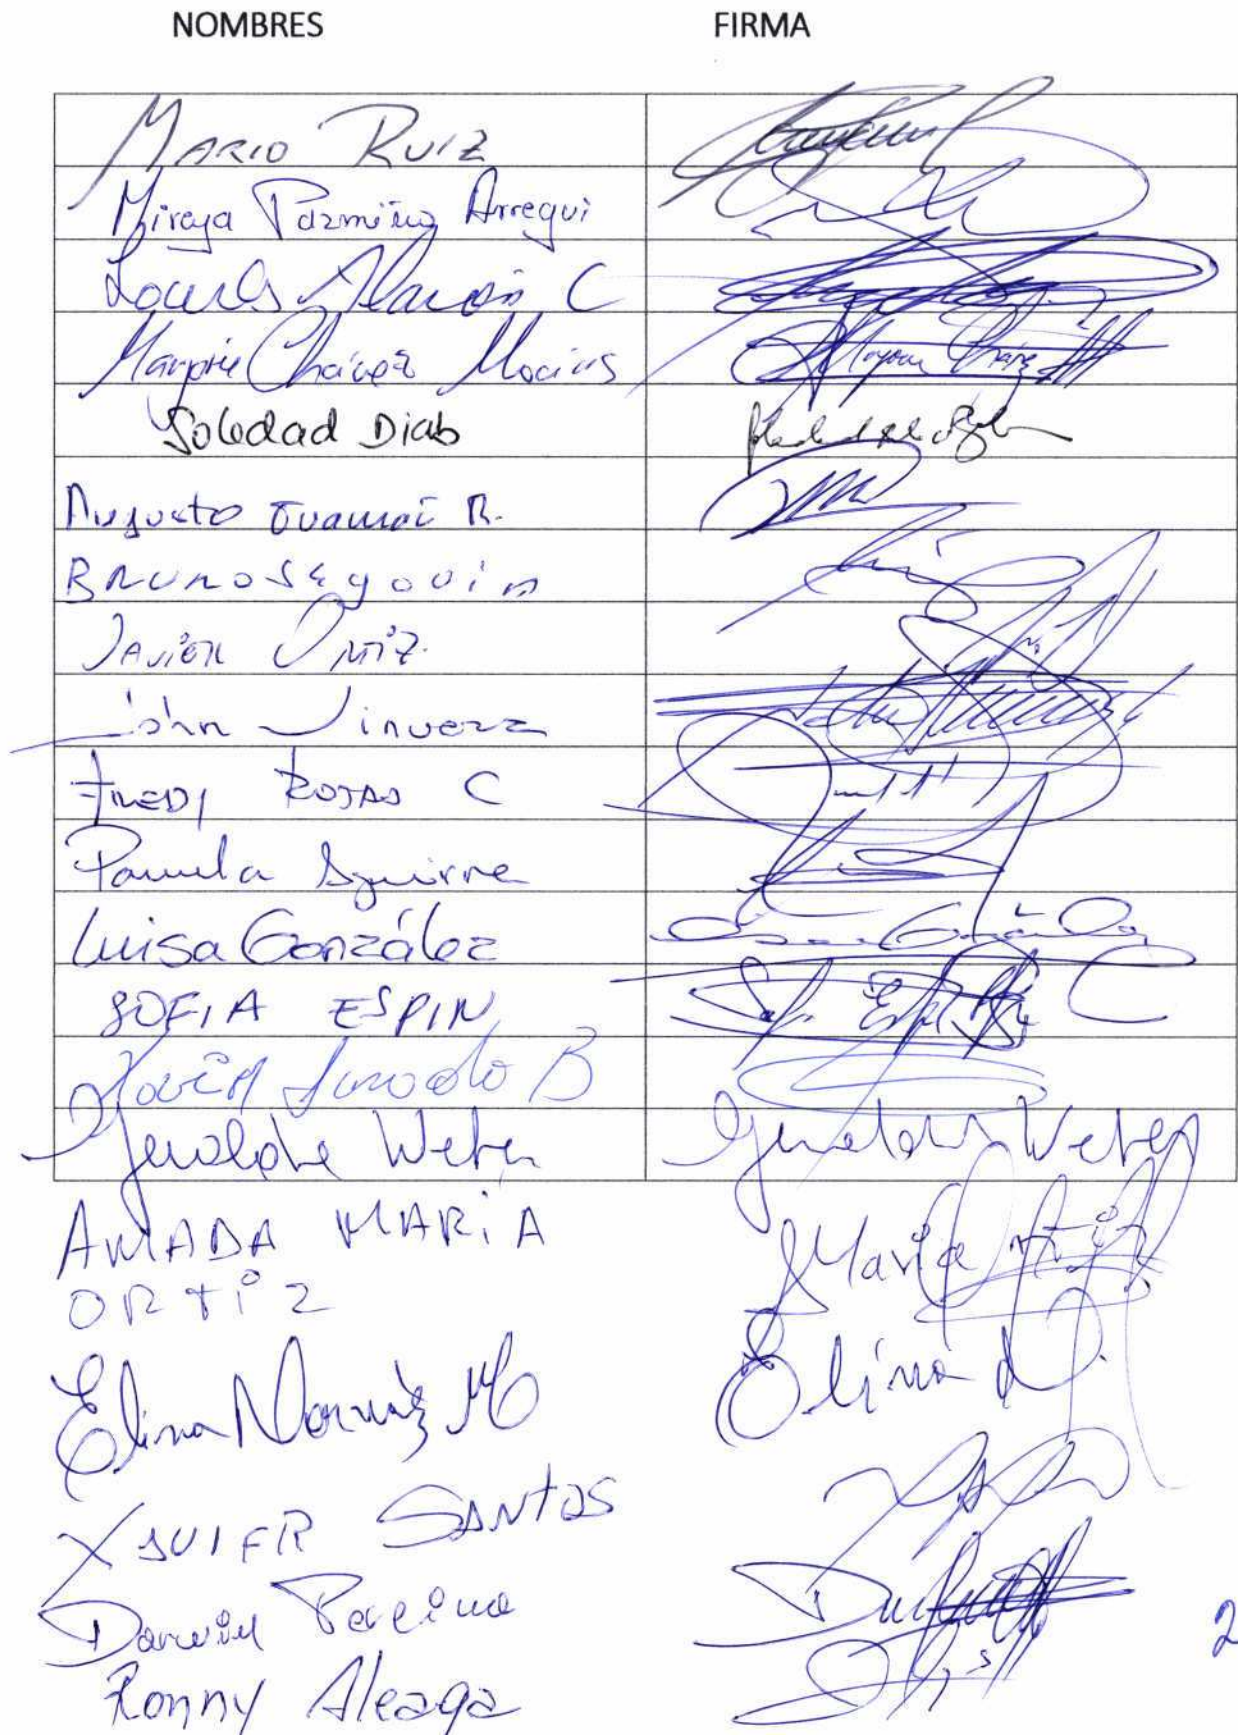 NOMBRES FIRMA
MARIO RUIZ
Mireya Pazmiño Arregui
Lourdes Alarcón C
Marjorie Chávez Macías
Soledad Diab
Augusto Guamán R.
BRUNO SEgoviA
JAviER ORTiZ.
John Vinueza
FREDI ROJAS C
Pamela Aguirre
Luisa González
Luisa González
SOFIA ESPIN
Sofía Esp
Xavier Jurado B
Geraldine Weber
Geraldine Weber
AMADA MARíA María Ortiz
ORTiZ
Elina Narváez M Elina N.
XAVIER SANTOS
Darwin Pereira
Ronny Aleaga
2